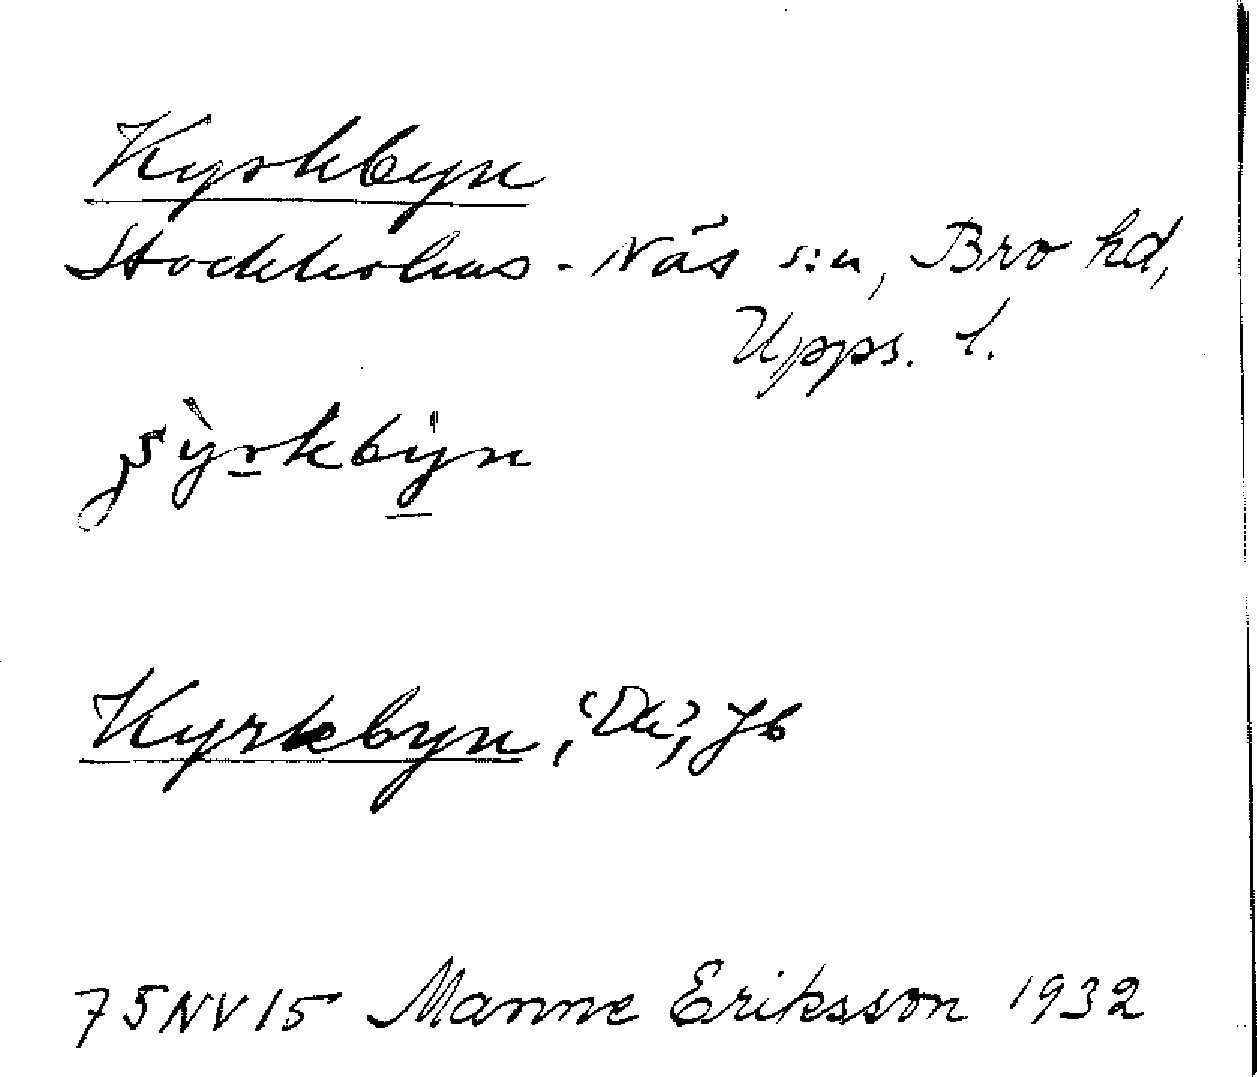 Kyrkbyn
Stockholms-Näs s:n, Bro hd,
Upps. l.
Kyrkbyn, 'Da', Jb
75NV15 Manne Eriksson 1932